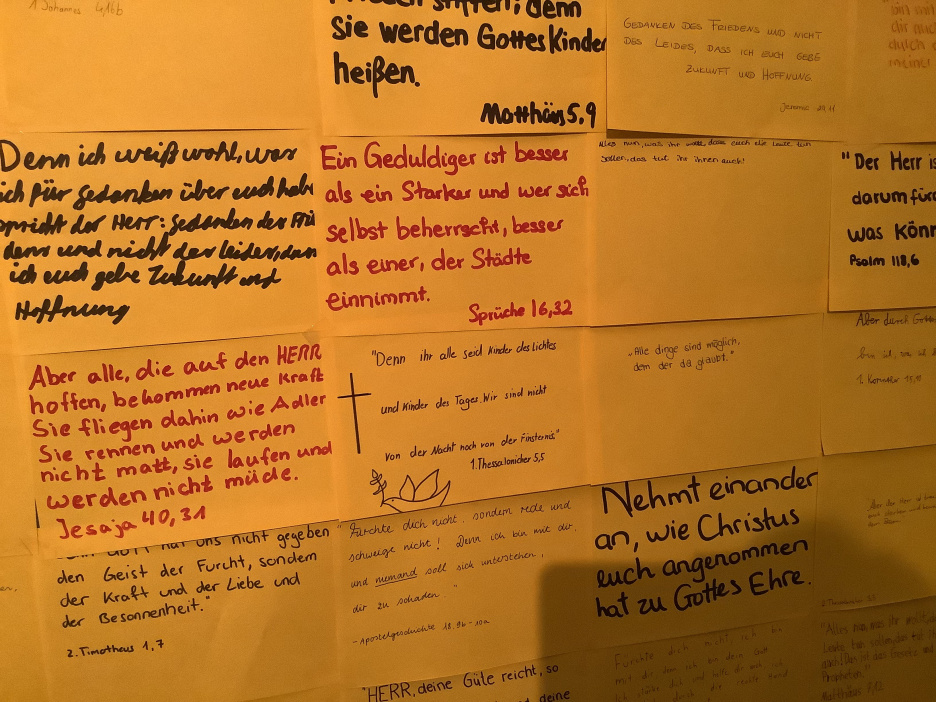 1 Johannes 4,16b
denn
Sie werden Gottes Kinder
heißen.
Matthäus 5,9
GEDANKEN DES FRIEDENS UND NICHT
DES LEIDES, DASS ICH EUCH GEBE
ZUKUNFT UND HOFFNUNG.
dir auch
durch
meiner
Denn ich weiß wohl, was
ich für gedanken über euch habe
spricht der Herr: gedanken des
und nicht des leides, dass
ich euch gebe Zukunft und
Hoffnung
Ein Geduldiger ist besser
als ein Starker und wer sich
selbst beherrscht, besser
als einer, der Städte
einnimmt.
Sprüche 16,32
Alles nun, was ihr dass euch die Leute tun
sollen, das tut ihr ihnen auch!
"Der Herr is
darum für
was könn
Psalm 118,6
Aber alle, die auf den HERR
hoffen, bekommen neue Kraft
Sie fliegen dahin wie Adler
Sie rennen und werden
nicht matt, sie laufen und
werden nicht müde.
Jesaja 40,31
"Denn ihr alle seid Kinder des Lichtes
und Kinder des Tages. Wir sind nicht
von der Nacht noch von der Finsternis."
1. Thessalonicher 5,5
„Alle dinge sind möglich,
dem der da glaubt."
Aber durch Gottes
1. Korinther 15,10
uns nicht gegeben
den Geist der Furcht, sondern
der Kraft und der Liebe und
der Besonnenheit."
2. Timotheus 1,7
"Fürchte dich nicht, sondern rede und
schweige nicht! Denn ich bin mit dir,
und niemand soll sich unterstehen,
dir zu schaden."
- Apostelgeschichte 18.9b-10a
Nehmt einander
an, wie Christus
euch angenommen
hat zu Gottes Ehre.
"HERR, deine Güte reicht, so
deine
Fürchte dich nicht, ich bin
mit dir,
"Alles nun, was ihr
Leute tun sollen, das tut
das Gesetz und
Propheten."
Matthäus 7,12